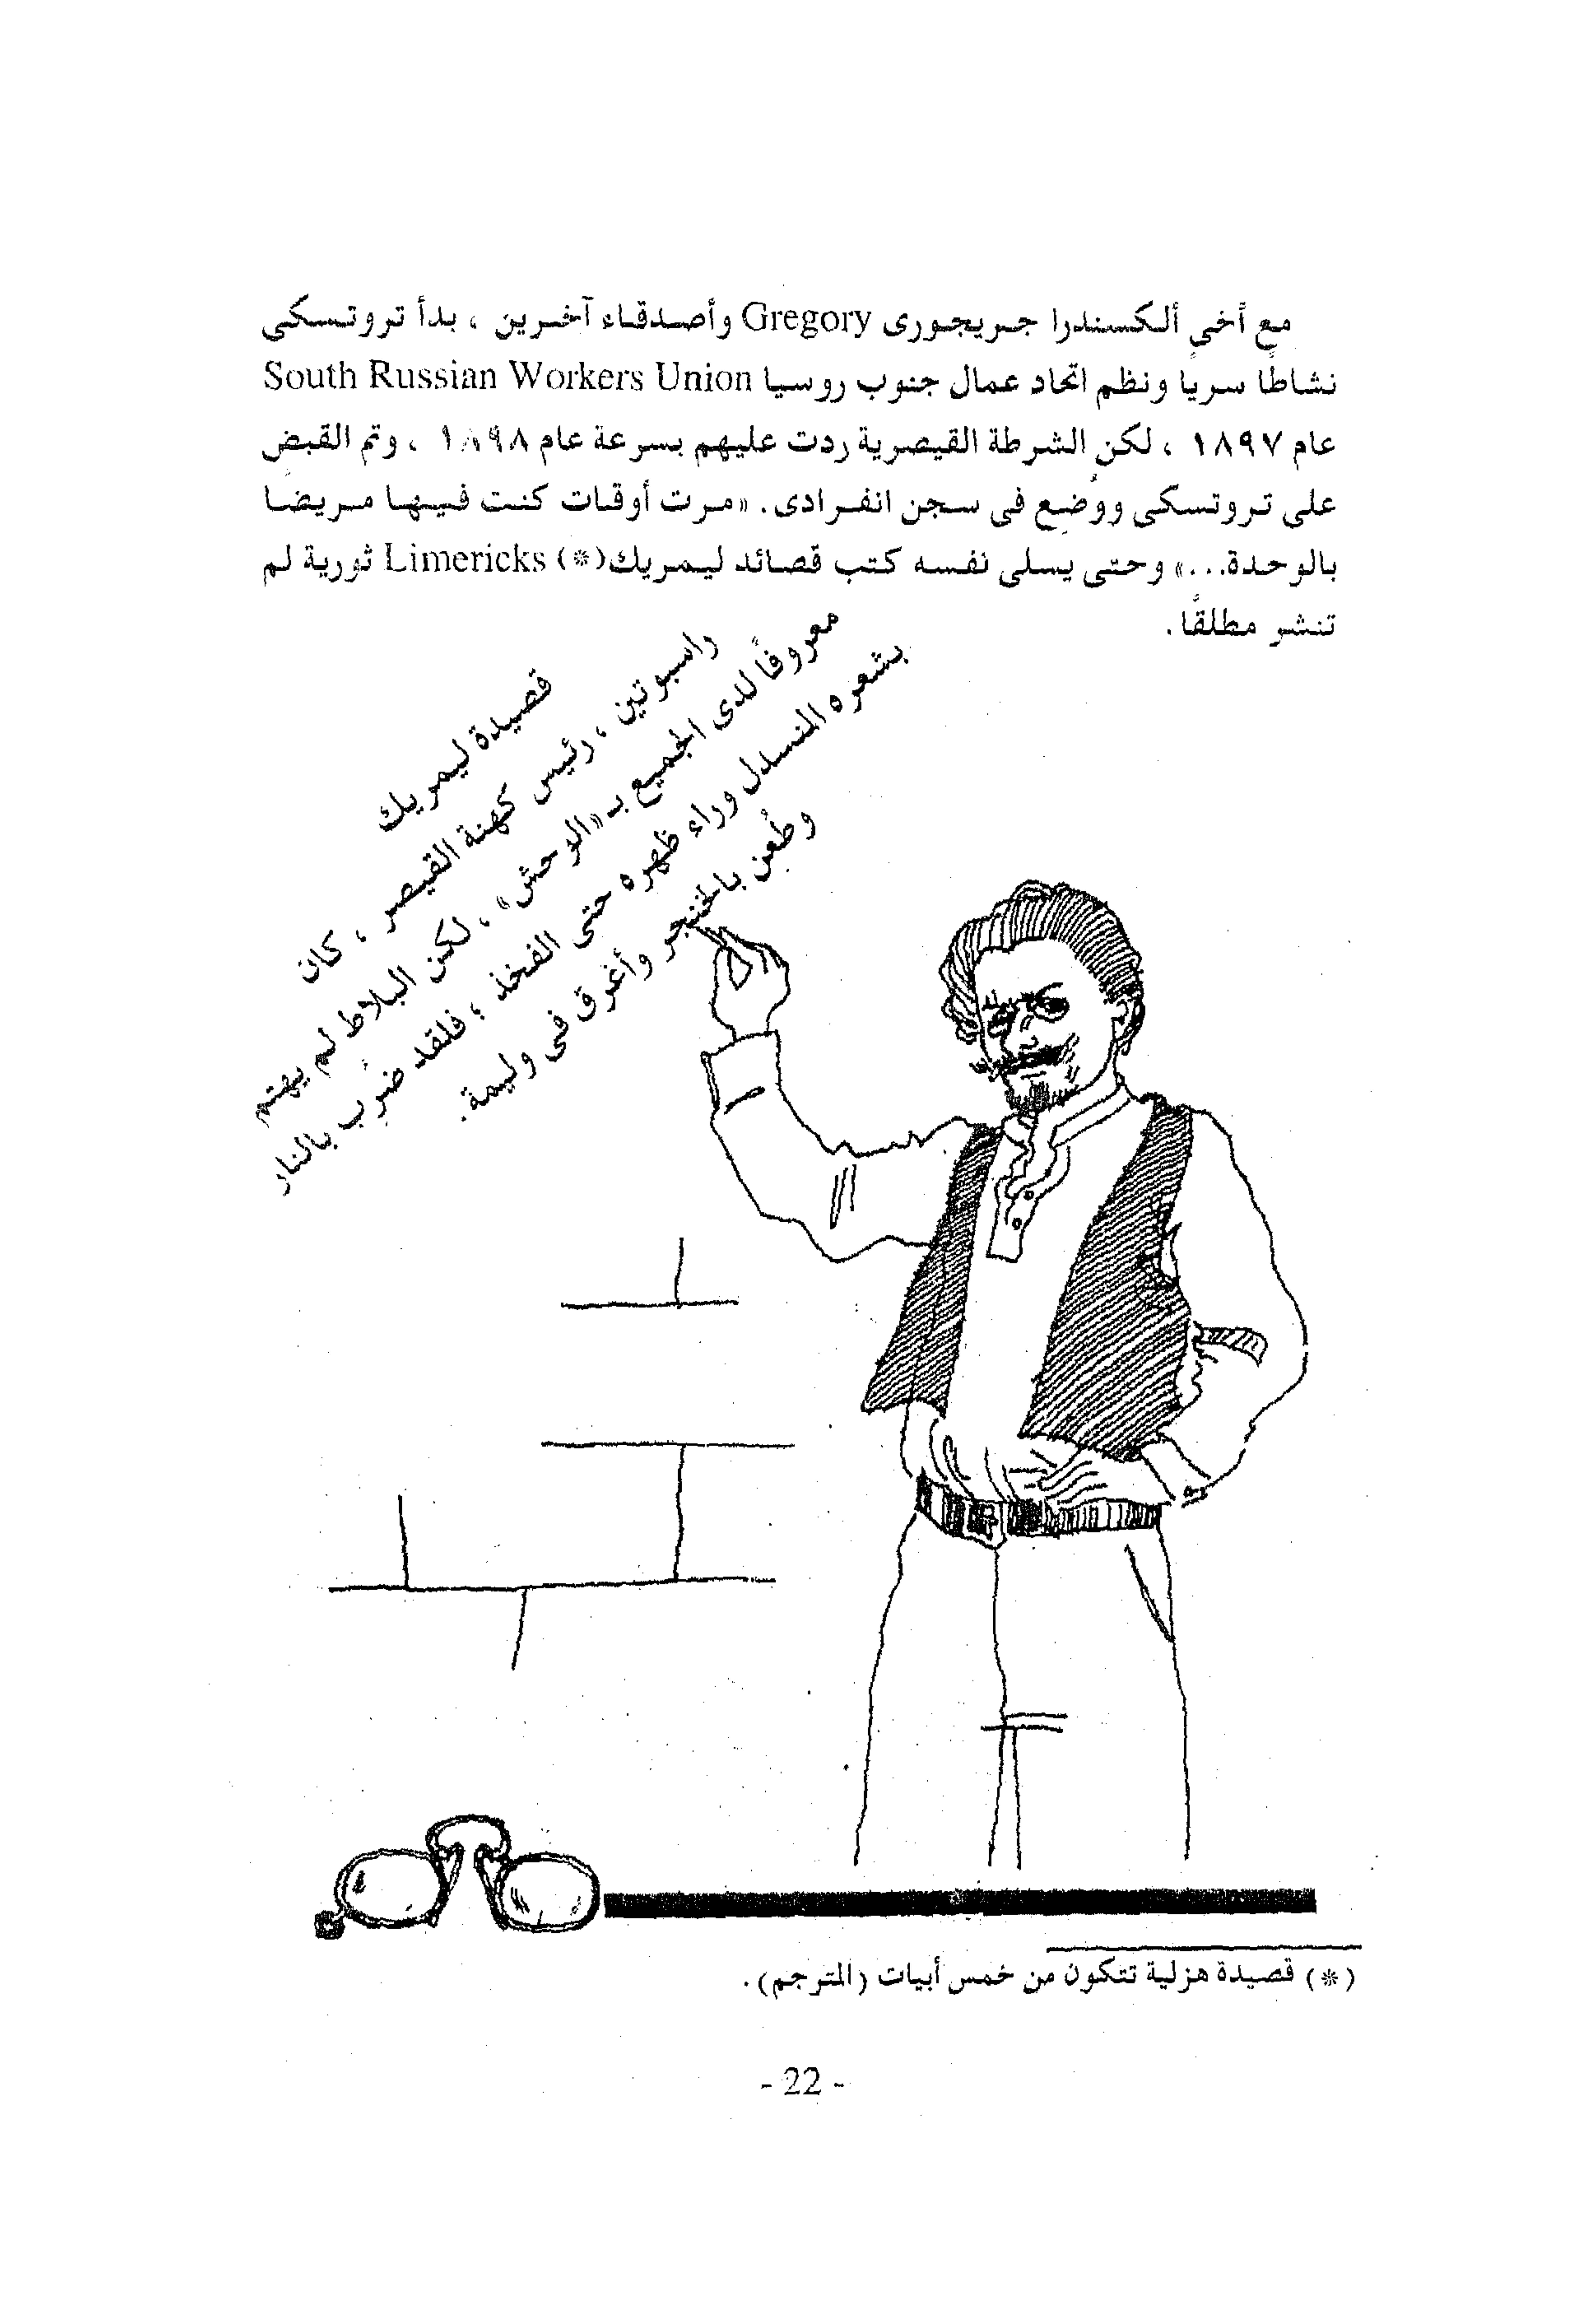 مع أخى ألكسندرا جريجورى Gregory وأصدقاء آخرين ، بدأ تروتسكى
نشاطًا سريًا ونظم اتحاد عمال جنوب روسيا South Russian Workers Union
عام ١٨٩٧ ، لكن الشرطة القيصرية ردت عليهم بسرعة عام ١٨٩٨ ، وتم القبض
على تروتسكى ووُضِع فى سجن انفرادى. «مرت أوقات كنت فيها مريضًا
بالوحدة...» وحتى يسلى نفسه كتب قصائد ليمريك(*) Limericks ثورية لم
تنشر مطلقًا.
قصيدة ليمريك
راسبوتين ، رئيس كهنة القيصر ، كان
معروفًا لدى الجميع بـ«الوحش» ، لكن البلاط لم يهتم
بشعره المنسدل وراء ظهره حتى الفخذ ؛ فلقد ضُرِب بالنار
وطُعِن بالخنجر وأغرق فى وليمة.
(*) قصيدة هزلية تتكون من خمس أبيات (المترجم).
- 22 -